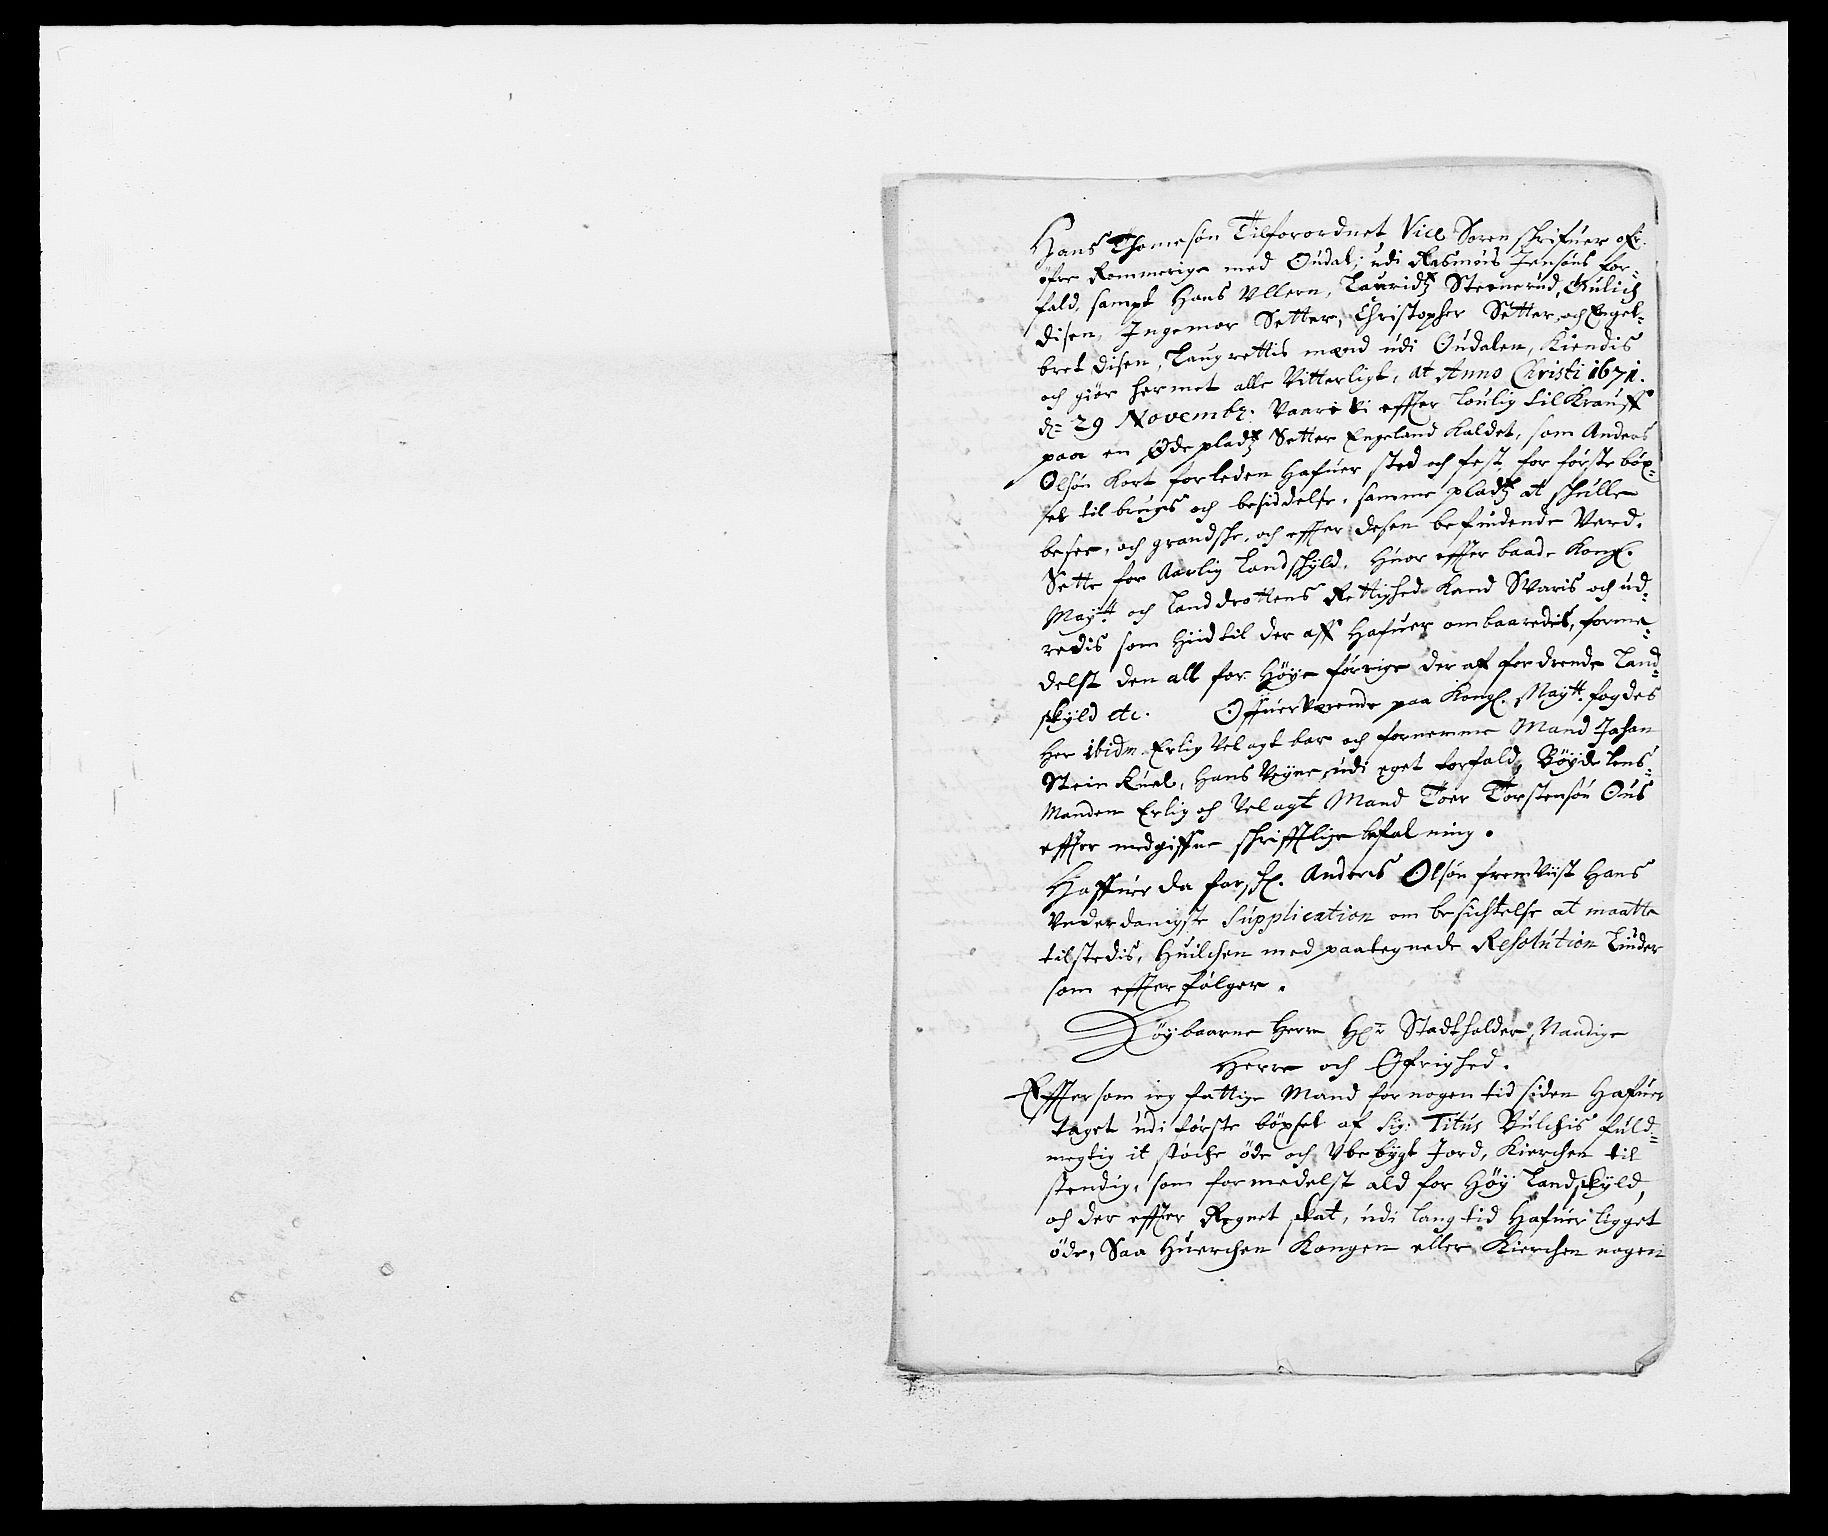 Hans Thomesøn Tilforordnet Vice Sorenschrifuer ofr.
øfre Rommerige med Oudal, udi Rasmus Jensøns for-
fald, sampt Hans Ullern, Lauridtz Steenerud, Gulich
Disen, Ingemar Setter, Christopher Setter, och Engel-
bret Disen, Laugrettis mænd udi Oudalen, Kiendis
och giør hermet alle Vitterligt, at Anno Christi 1671.
d= 29 Novembr. Vaare Vi effter Loulig tilkrauff
paa en Øde pladtz Setter Engeland Kaldet, som Anders
Olsøn Kort forleden Hafuer sted och fest for første bøx-
sel til brugs och besiddelse, samme pladtz at schulle
besee, och grandsche, och effter desen befindende Værd.
Sette for Aarlig Landschyld, Huor effter baade Kongl.
Maytt. och Landdrottens Rettighed Kand Svaris och ud-
redis som hiid til der aff Hafuer ombaaredis, forme-
delst den alt for Høye forrige der af fordrende Land-
skyld etc. Offuerværende paa Kongl. Maytt. fogdes
her ibidm Erlig Velagtbar och fornemme Mand Johan
Steinkuel, Hans Vegne, udi eget forfald, Bøyde Lens-
Manden Erlig och Velagt Mand Toer Torstensøn Ous
effter medgiffne schrifftlige befalning.
Haffuer da forschl. Anders Olsøn fremViist Hans
Underdanigste Supplication om besichtelse at maatte
tilstedis, Huilchen med paategnede Resolution Liuder
som effterfølger.
Høybaarne Herre Hr Stadtholder, Naadige
Herre och Øfrighed.
Efftersom ieg fattige Mand for nogen tid siden Hafuer
taget udi første bøxsel af Sig: Titus Bulchis fuld-
megtig it støche øde och Ubebygt Jord, Kierchen til
stendig, som formedelst ald for Høy Landskyld,
och der effter Regnet skat, udi lang tid Hafuer ligget
øde, Saa Huerchen Kongen eller Kierchen nogen